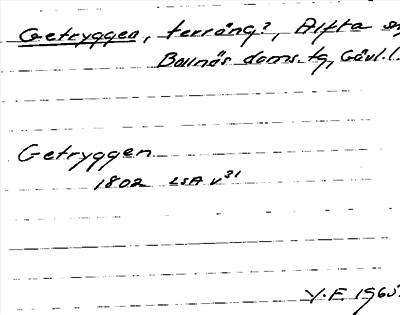 Getryggen, terräng?, Alfta sn
Bollnäs doms. tg, Gävl.l.
Getryggen
1802 LSA V 31
Y.F. 1965